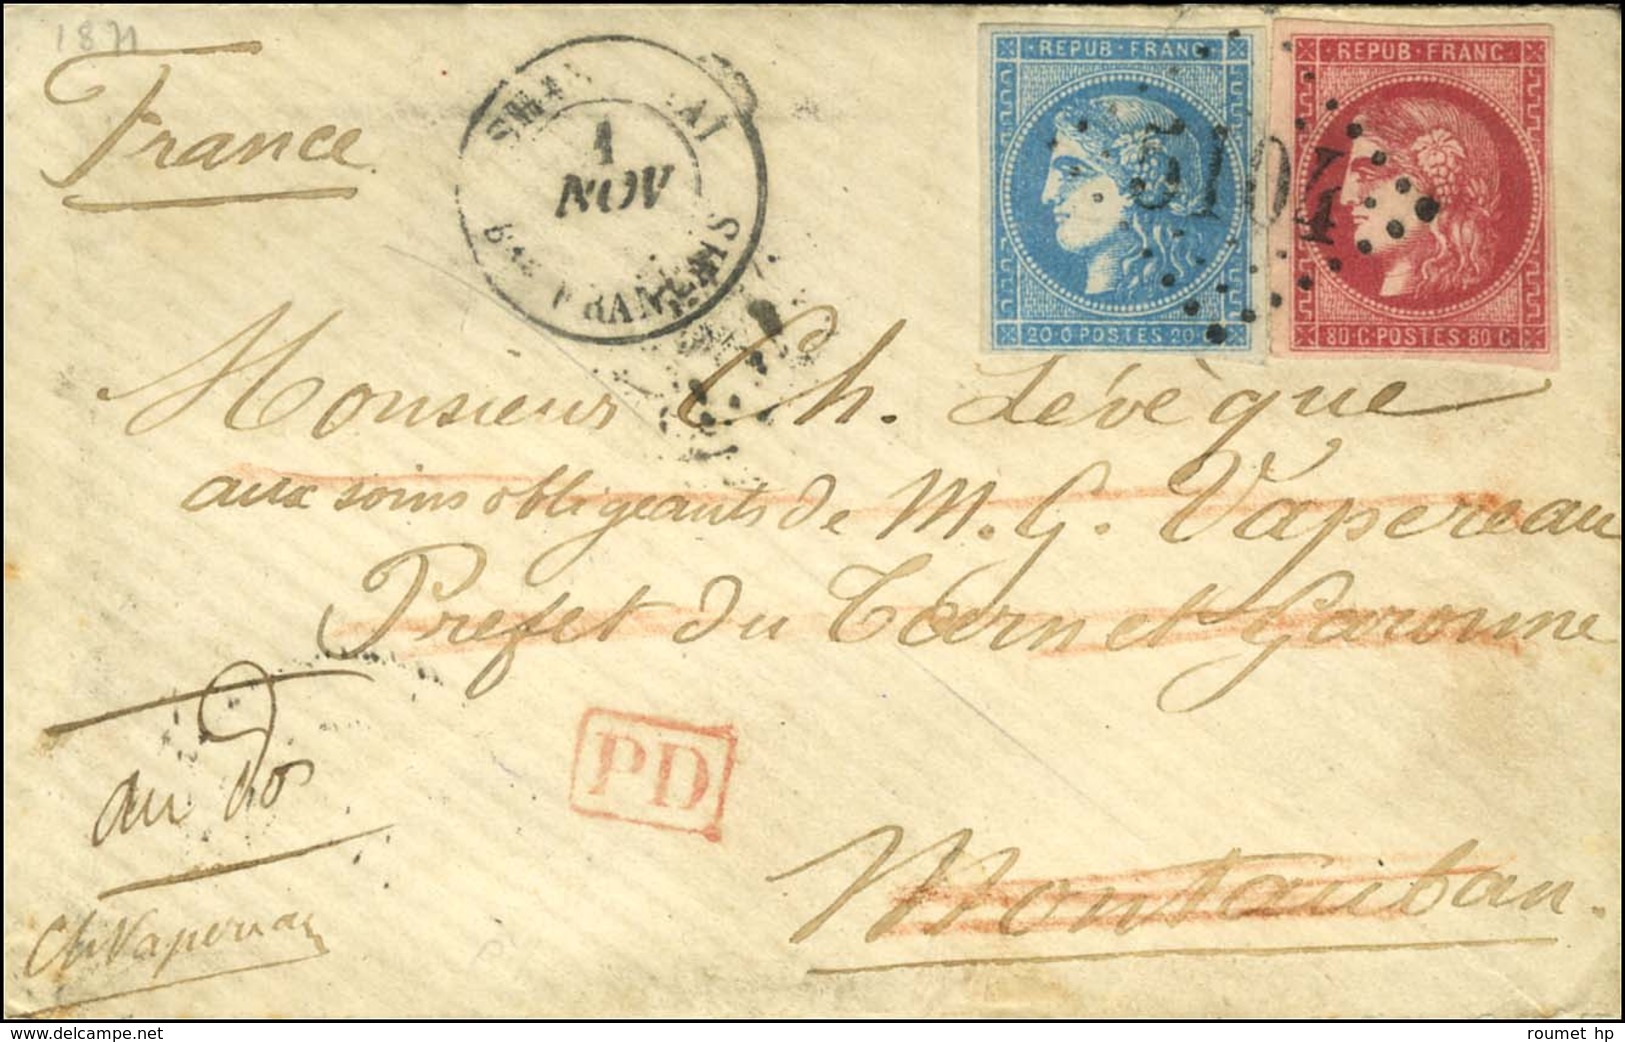 1871
France
1
NOV
Bau FRANCAIS
REPUB · FRANC
20 · C POSTES 20
REPUB · FRANC
80 · C · POSTES · 80 · C
5104
Monsieur Ch. Lévêque
aux soins obligeants de M. G. Vapereau
Préfet du Tarn et Garonne
au dos
PD
Montauban.
www.delcampe.net
roumet hp